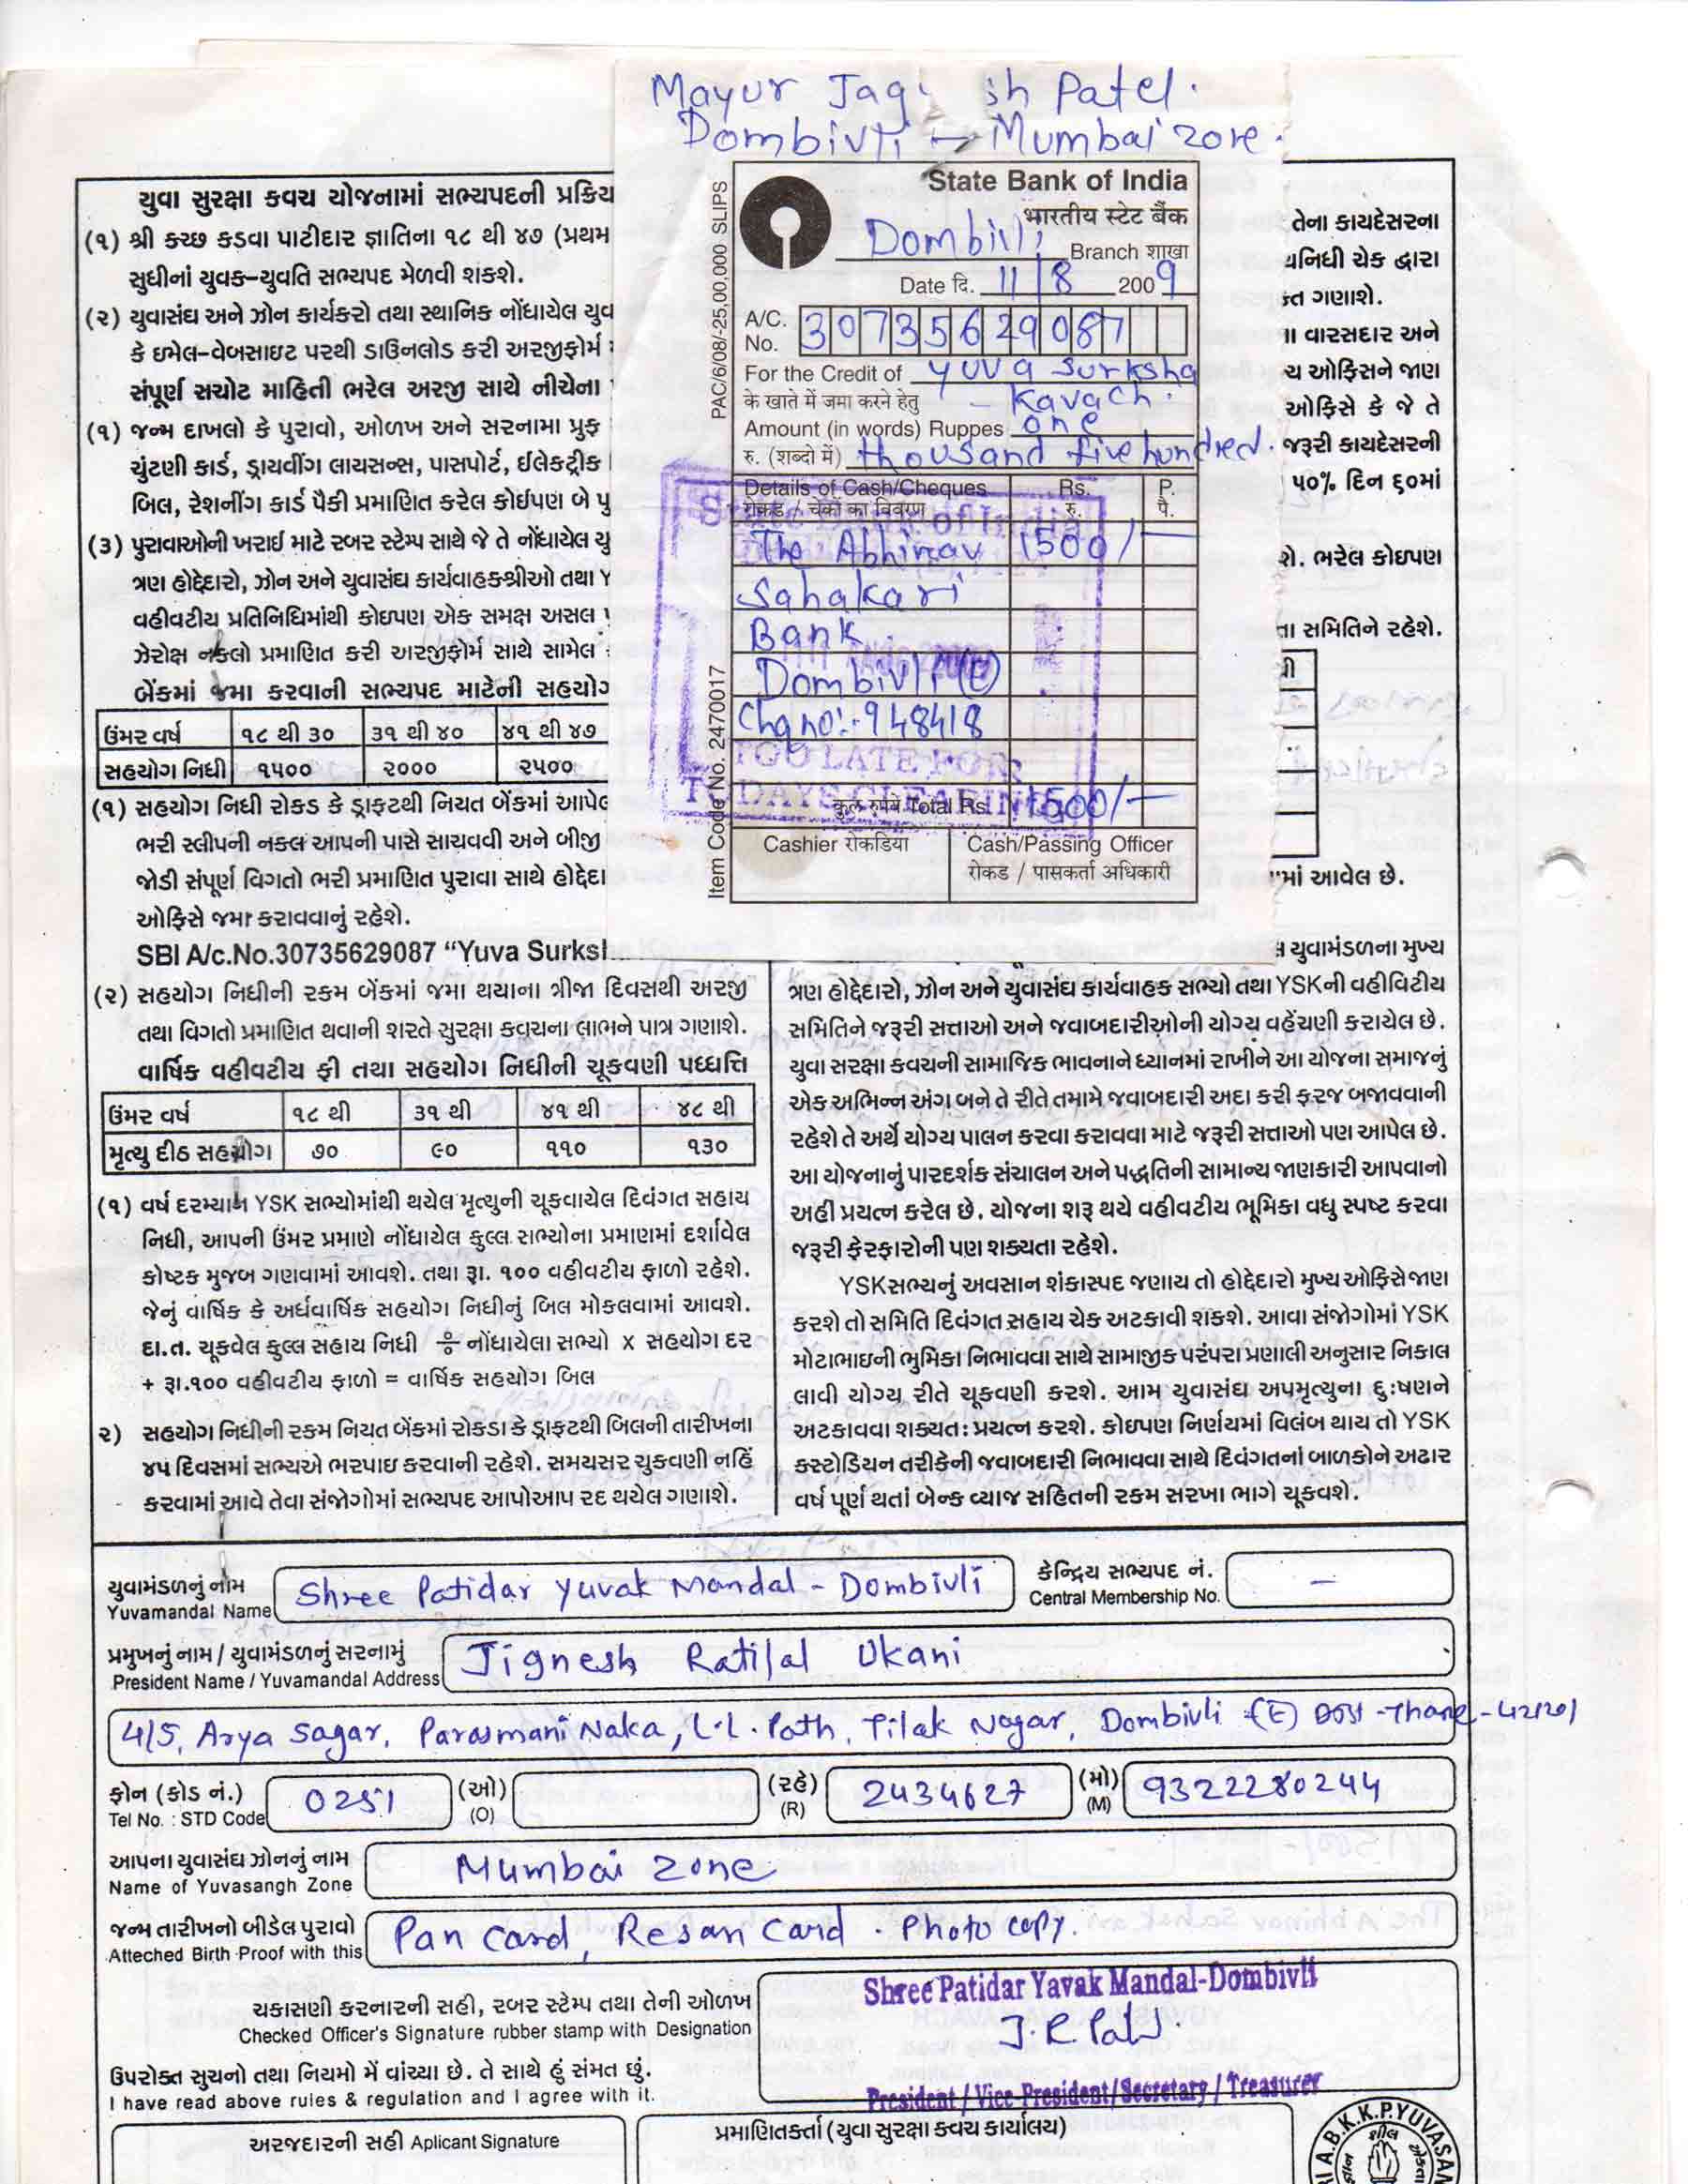 Mayur Jag sh Patel.
Dombivli → Mumbai zone.
PAC/6/08/-25,00,000 SLIPS
Item Code No. 2470017
State Bank of India
भारतीय स्टेट बैंक
Dombivli
Branch शाखा
Date दि. 11/8 2009
A/C. No. 30735629087
For the Credit of Yuva Surksha
के खाते में जमा करने हेतु - Kavach.
Amount (in words) Ruppes one
रु. (शब्दो में) thousand five hundred.
Details of Cash/Cheques Rs. P.
रोकड / चेकों का विवरण रु. पै.
The Abhinav 1500/-
Sahakari
Bank.
Dombivli (E)
Chq no:- 948418
कुल रुपये Total Rs. 1500/-
Cashier रोकडिया Cash/Passing Officer
रोकड / पासकर्ता अधिकारी
State Bank of India
TOO LATE FOR
TODAYS CLEARING
યુવા સુરક્ષા કવચ યોજનામાં સભ્યપદની પ્રક્રિય
(૧) શ્રી કચ્છ કડવા પાટીદાર જ્ઞાતિના ૧૮ થી ૪૭ (પ્રથમ
સુધીનાં યુવક-યુવતિ સભ્યપદ મેળવી શકશે.
(૨) યુવાસંઘ અને ઝોન કાર્યકરો તથા સ્થાનિક નોંધાયેલ યુવ
કે ઇમેલ-વેબસાઇટ પરથી ડાઉનલોડ કરી અરજીફોર્મ
સંપૂર્ણ સચોટ માહિતી ભરેલ અરજી સાથે નીચેના
(૧) જન્મ દાખલો કે પુરાવો, ઓળખ અને સરનામા પ્રુફ
ચુંટણી કાર્ડ, ડ્રાયવીંગ લાયસન્સ, પાસપોર્ટ, ઈલેકટ્રીક
બિલ, રેશનીંગ કાર્ડ પૈકી પ્રમાણિત કરેલ કોઈપણ બે પુ
(૩) પુરાવાઓની ખરાઈ માટે રબર સ્ટેમ્પ સાથે જે તે નોંધાયેલ યુ
ત્રણ હોદ્દેદારો, ઝોન અને યુવાસંઘ કાર્યવાહકશ્રીઓ તથા Y
વહીવટીય પ્રતિનિધિમાંથી કોઇપણ એક સમક્ષ અસલ
ઝેરોક્ષ નકલો પ્રમાણિત કરી અરજીફોર્મ સાથે સામેલ
બેંકમાં જમા કરવાની સભ્યપદ માટેની સહયોગ
ઉંમર વર્ષ ૧૮ થી ૩૦ ૩૧ થી ૪૦ ૪૧ થી ૪૭
સહયોગ નિધી ૧૫૦૦ ૨૦૦૦ ૨૫૦૦
(૧) સહયોગ નિધી રોકડ કે ડ્રાફટથી નિયત બેંકમાં આપેલ
ભરી સ્લીપની નકલ આપની પાસે સાચવવી અને બીજી
જોડી સંપૂર્ણ વિગતો ભરી પ્રમાણિત પુરાવા સાથે હોદ્દેદા
ઓફિસે જમા કરાવવાનું રહેશે.
SBI A/c.No.30735629087 “Yuva Surksh
(૨) સહયોગ નિધીની રકમ બેંકમાં જમા થયાના ત્રીજા દિવસથી અરજી
તથા વિગતો પ્રમાણિત થવાની શરતે સુરક્ષા કવચના લાભને પાત્ર ગણાશે.
વાર્ષિક વહીવટીય ફી તથા સહયોગ નિધીની ચૂકવણી પધ્ધતિ
ઉંમર વર્ષ ૧૮ થી ૩૧ થી ૪૧ થી ૪૮ થી
મૃત્યુ દીઠ સહયોગ ૭૦ ૯૦ ૧૧૦ ૧૩૦
(૧) વર્ષ દરમ્યાન YSK સભ્યોમાંથી થયેલ મૃત્યુની ચૂકવાયેલ દિવંગત સહાય
નિધી, આપની ઉંમર પ્રમાણે નોંધાયેલ કુલ્લ સભ્યોના પ્રમાણમાં દર્શાવેલ
કોષ્ટક મુજબ ગણવામાં આવશે. તથા રૂા. ૧૦૦ વહીવટીય ફાળો રહેશે.
જેનું વાર્ષિક કે અર્ધવાર્ષિક સહયોગ નિધીનું બિલ મોકલવામાં આવશે.
દા.ત. ચૂકવેલ કુલ્લ સહાય નિધી ÷ નોંધાયેલા સભ્યો x સહયોગ દર
+ રૂા.૧૦૦ વહીવટીય ફાળો = વાર્ષિક સહયોગ બિલ
૨) સહયોગ નિધીની રકમ નિયત બેંકમાં રોકડા કે ડ્રાફટથી બિલની તારીખના
૪૫ દિવસમાં સભ્યએ ભરપાઇ કરવાની રહેશે. સમયસર ચુકવણી નહિં
કરવામાં આવે તેવા સંજોગોમાં સભ્યપદ આપોઆપ રદ થયેલ ગણાશે.
તેના કાયદેસરના
યનિધી ચેક દ્વારા
ક્ત ગણાશે.
ા વારસદાર અને
ય ઓફિસને જાણ
ઓફિસે કે જે તે
જરૂરી કાયદેસરની
૫૦% દિન ૬૦માં
શે. ભરેલ કોઇપણ
તા સમિતિને રહેશે.
માં આવેલ છે.
યુવામંડળના મુખ્ય
ત્રણ હોદ્દેદારો, ઝોન અને યુવાસંઘ કાર્યવાહક સભ્યો તથા YSKની વહીવિટીય
સમિતિને જરૂરી સત્તાઓ અને જવાબદારીઓની યોગ્ય વહેંચણી કરાયેલ છે.
યુવા સરક્ષા કવચની સામાજિક ભાવનાને ધ્યાનમાં રાખીને આ યોજના સમાજનું
એક અભિન્ન અંગ બને તે રીતે તમામે જવાબદારી અદા કરી ફરજ બજાવવાની
રહેશે તે અર્થે યોગ્ય પાલન કરવા કરાવવા માટે જરૂરી સત્તાઓ પણ આપેલ છે.
આ યોજનાનું પારદર્શક સંચાલન અને પદ્ધતિની સામાન્ય જાણકારી આપવાનો
અહીં પ્રયત્ન કરેલ છે. યોજના શરૂ થયે વહીવટીય ભૂમિકા વધુ સ્પષ્ટ કરવા
જરૂરી ફેરફારોની પણ શક્યતા રહેશે.
YSKસભ્યનું અવસાન શંકાસ્પદ જણાય તો હોદ્દેદારો મુખ્ય ઓફિસે જાણ
કરશે તો સમિતિ દિવંગત સહાય ચેક અટકાવી શકશે. આવા સંજોગોમાં YSK
મોટાભાઇની ભુમિકા નિભાવવા સાથે સામાજીક પરંપરા પ્રણાલી અનુસાર નિકાલ
લાવી યોગ્ય રીતે ચૂકવણી કરશે. આમ યુવાસંઘ અપમૃત્યુના દુઃષણને
અટકાવવા શક્યતઃ પ્રયત્ન કરશે. કોઇપણ નિર્ણયમાં વિલંબ થાય તો YSK
કસ્ટોડિયન તરીકેની જવાબદારી નિભાવવા સાથે દિવંગતનાં બાળકોને અઢાર
વર્ષ પૂર્ણ થતાં બેન્ક વ્યાજ સહિતની રકમ સરખા ભાગે ચૂકવશે.
યુવામંડળનું નામ Shree Patidar Yuvak Mandal - Dombivli કેન્દ્રિય સભ્યપદ નં. -
Yuvamandal Name Central Membership No.
પ્રમુખનું નામ / યુવામંડળનું સરનામું Jignesh Ratilal Ukani
President Name / Yuvamandal Address
4/5, Arya Sagar, Parasmani Naka, L.L. Path, Tilak Nagar, Dombivli (E) Dist - Thane - 421201
ફોન (કોડ નં.) 0251 (ઓ) (રહે) 2434627 (મો) 9322280244
Tel No. : STD Code (O) (R) (M)
આપના યુવાસંઘ ઝોનનું નામ Mumbai Zone
Name of Yuvasangh Zone
જન્મ તારીખનો બીડેલ પુરાવો Pan Card, Resan Card . Photo copy.
Atteched Birth Proof with this
Shree Patidar Yavak Mandal-Dombivli
ચકાસણી કરનારની સહી, રબર સ્ટેમ્પ તથા તેની ઓળખ
Checked Officer's Signature rubber stamp with Designation
ઉપરોક્ત સુચનો તથા નિયમો મેં વાંચ્યા છે. તે સાથે હું સંમત છું.
I have read above rules & regulation and I agree with it.
President / Vice-President/Secretary / Treasurer
અરજદારની સહી Aplicant Signature
પ્રમાણિતકર્તા (યુવા સુરક્ષા કવચ કાર્યાલય)
A.B.K.K.P.YUVASAN